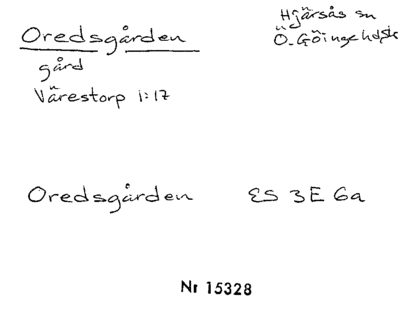 Oredsgården
Hjärsås sn
Ö. Göinge hd
gård
Värestorp 1:17
Oredsgården ES 3E 6a
Nr 15328